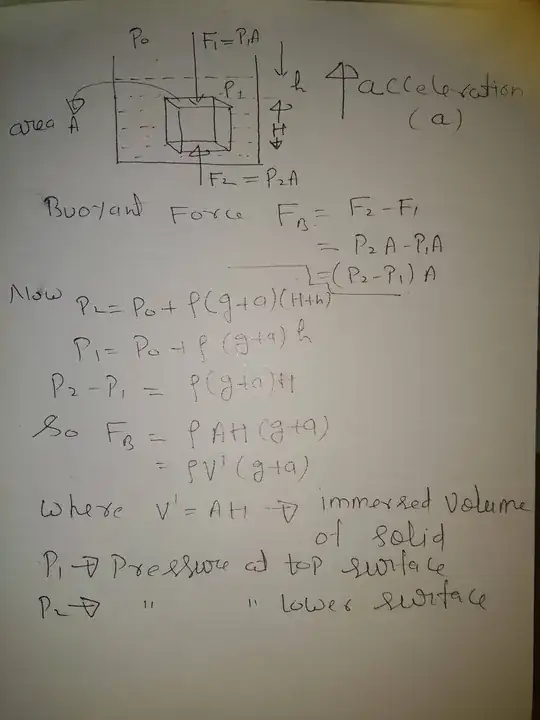 P₀
F₁ = P₁A
h
P₁
area A
H
acceleration
(a)
F₂ = P₂A
Buoyant Force F_B = F₂ - F₁
= P₂A - P₁A
= (P₂ - P₁) A
Now P₂ = P₀ + ρ(g+a)(H+h)
P₁ = P₀ + ρ(g+a) h
P₂ - P₁ = ρ(g+a)H
So F_B = ρ AH (g+a)
= ρV' (g+a)
Where V' = AH → immersed Volume
of solid
P₁ → Pressure at top surface
P₂ → " " lower surface